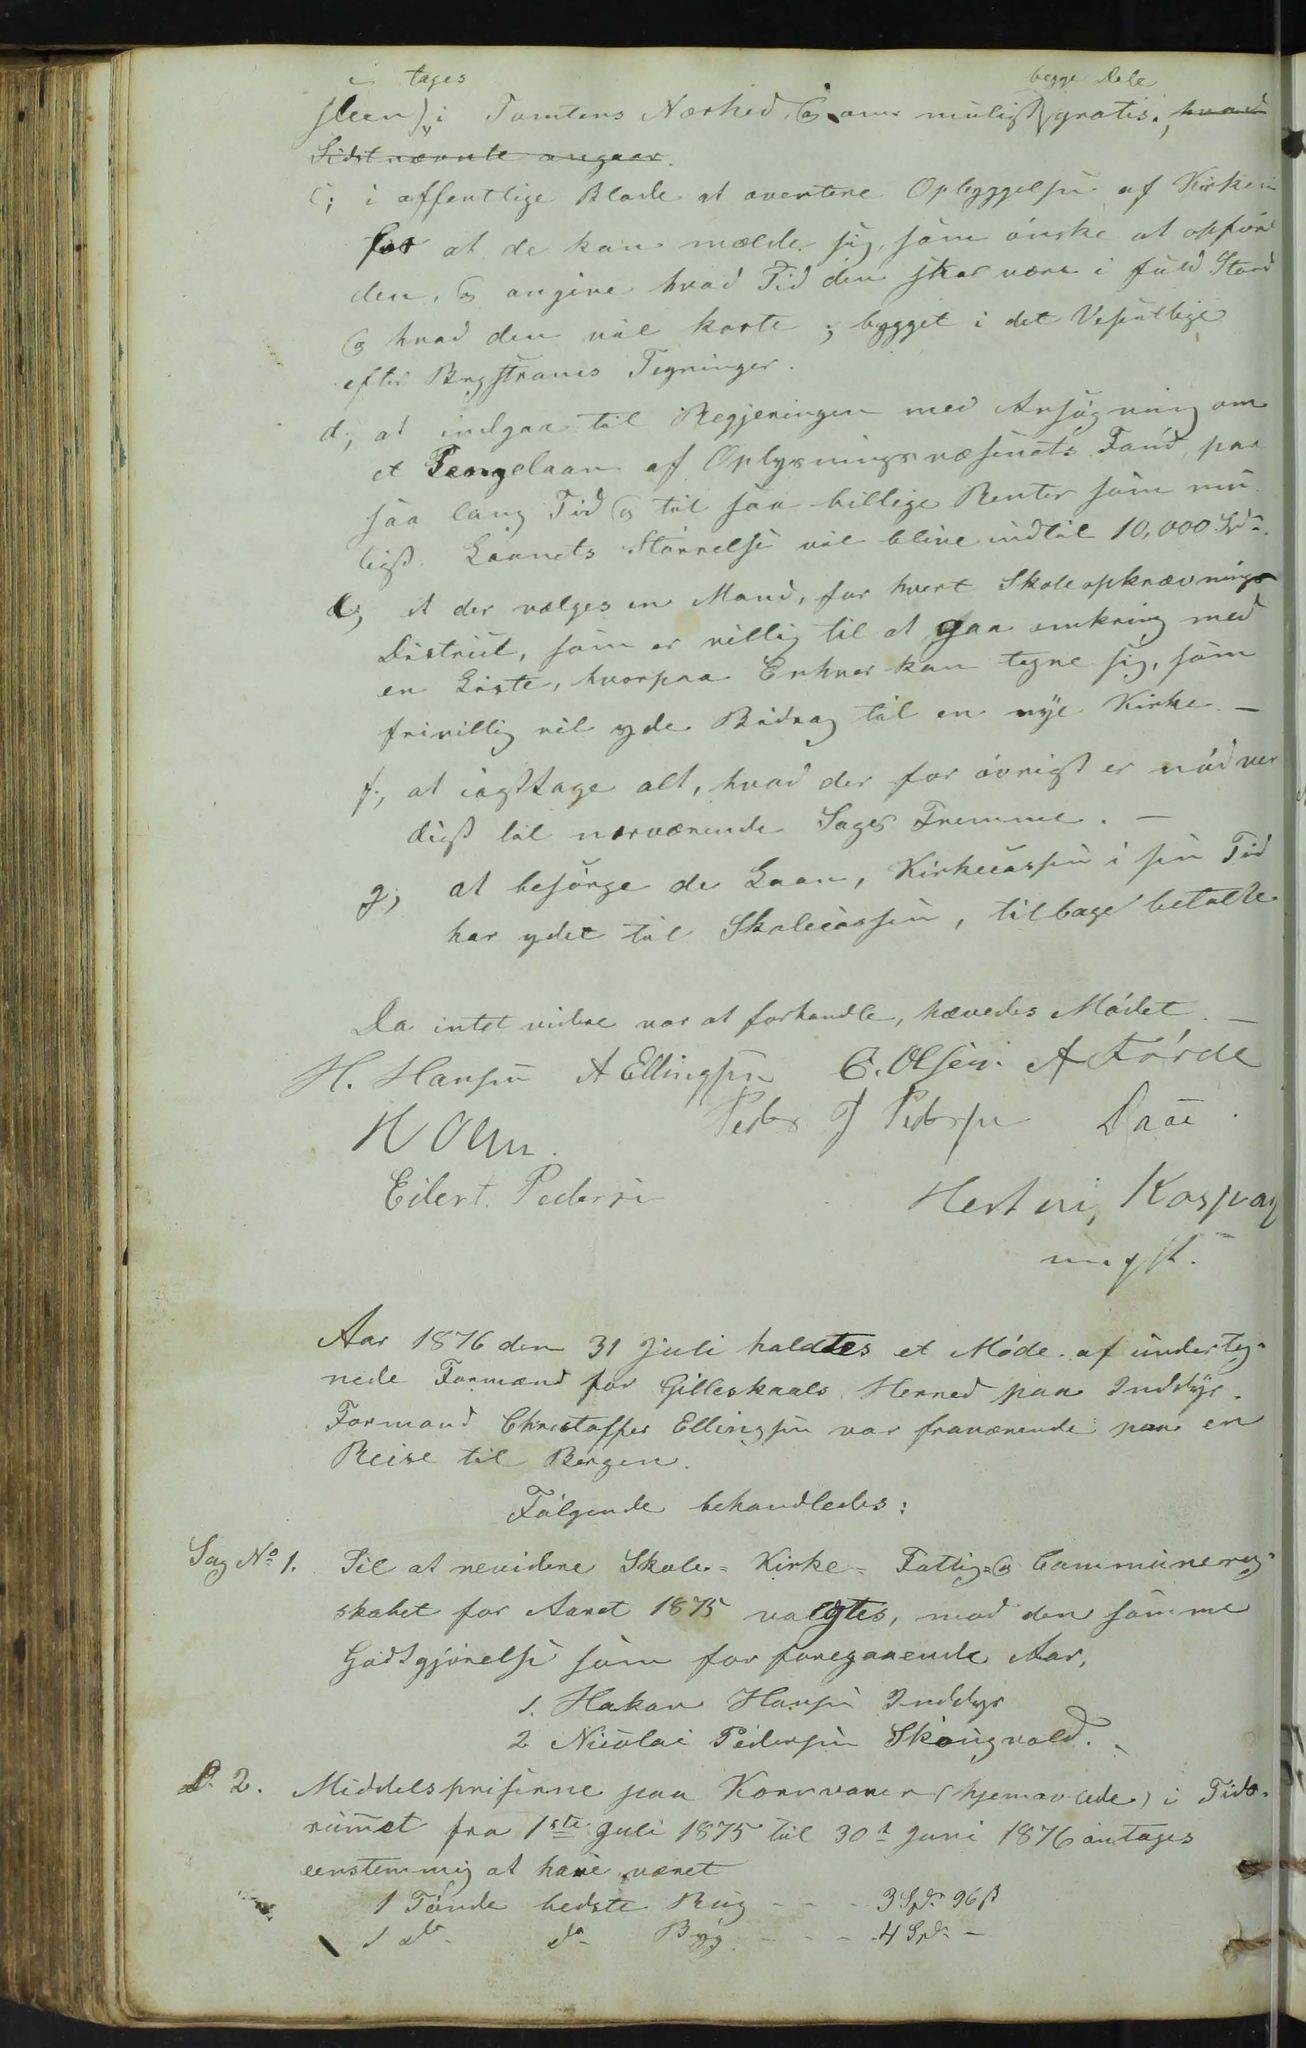 tages begge Dele
steen) i Tomtens Nærhed, og om muligt gratis, hvad
Sidstnævnte angaar.
c; i offentlige Blade at avertere Opbyggelsen af Kirken
for at de kan melde sig, som ønske at opføre
den, og angive hvad Tid den skal være i fuld Stand
og hvad den vil koste; bygget i det Vesentlige
efter Bergstrøms Tegninger.
d; at indgaa til Regjeringen med Ansøgning om
et Pengelaan af Oplysningsvæsenets Fond paa
saa lang Tid og til saa billige Renter som mu-
ligt. Laanets Størrelse vil blive indtil 10,000 Spd.
e; at der vælges en Mand, for hvert Skoleopkrævnings
District, som er villig til at gaa omkring med
en Liste, hvorpaa Enhver kan tegne sig, som
frivillig vil yde Bidrag til en nye Kirke. —
f; at iagttage alt, hvad der for øvrigt er nødven
digt til nærværende Sags Fremme. —
g; at besørge de Laan, Kirkecassen i sin Tid
har ydet til Skolecassen, tilbage betalte
Da intet videre var at forhandle, hævedes Mødet. —
H. Hansen A Ellingsen C. Olsen. A Førde
H Olsen. Peder J Pedersen Daae.
Eilert Pedersen
Aar 1876 den 31 Juli holdtes et Møde af underteg-
nede Formænd for Gilleskaals Herred paa Inddyr.
Formand Christoffer Ellingsen var fraværende paa en
Reise til Bergen.
Følgende behandledes:
Sag No 1. Til at revidere Skole- Kirke- Fattig- og Communereg-
skabet for Aaret 1875 valgtes, mod den samme
Godtgjørelse som for foregaaende Aar,
1. Hakon Hansen Inddyr
2 Nicolai Pedersen Skaugvold.
D. 2. Middelspriserne paa Kornvarer (hjemavlede) i Tids-
rummet fra 1ste Juli 1875 til 30t Juni 1876 antages
eenstemmig at have været
1 Tønde bedste Rug - - - 3 Spd. 96 ß
1 do do Byg - - - - 4 Spd. —